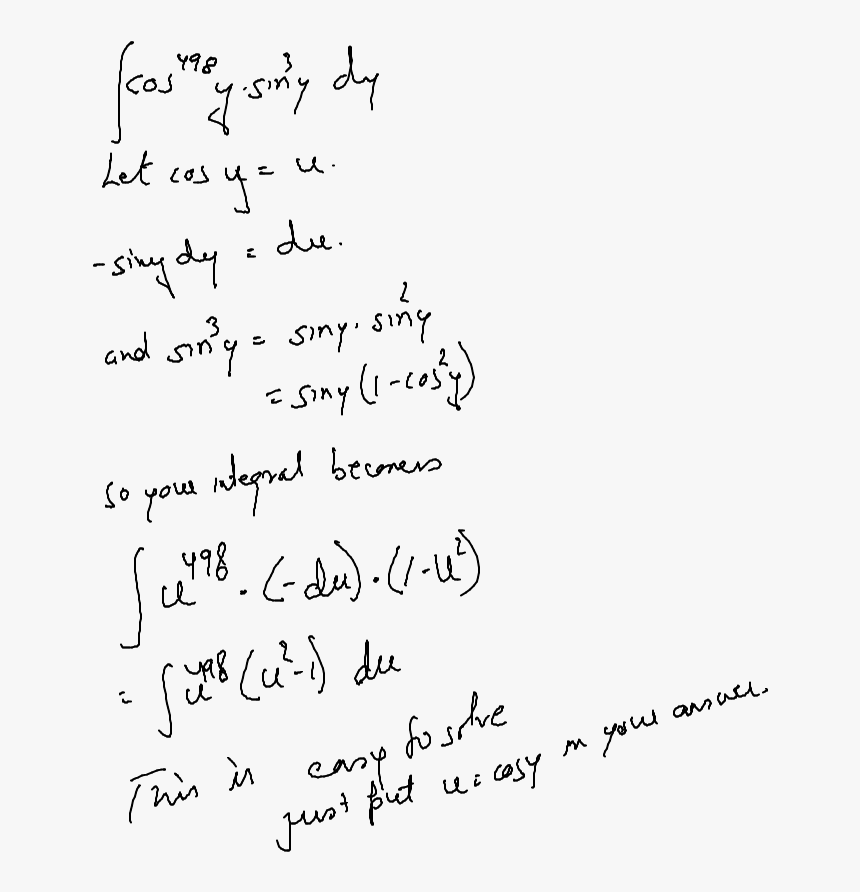 ∫cos⁴⁹⁸y·sin³y dy
Let cos y = u.
-siny dy = du.
and sin³y = siny. sin²y
= siny (1-cos²y)
so your integral becomes
∫u⁴⁹⁸. (-du).(1-u²)
= ∫u⁴⁹⁸(u²-1) du
This is easy to solve
just put u=cosy in your answer.